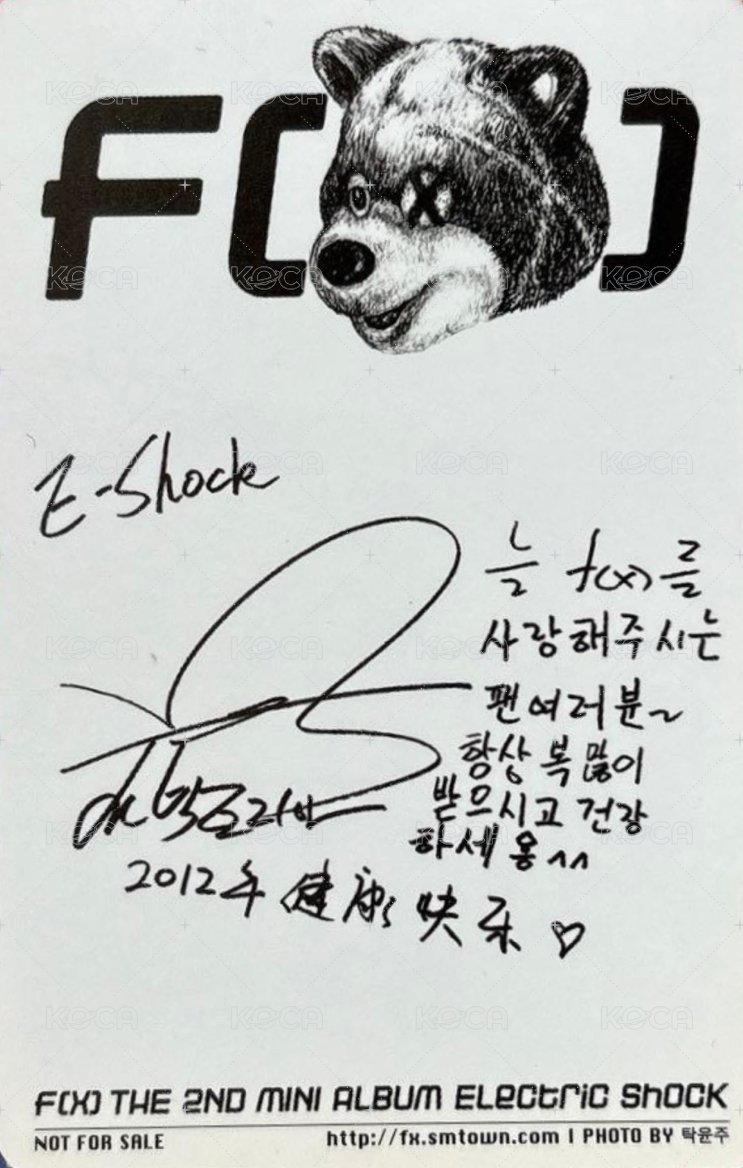 F( )
E-Shock
늘 f(x)를
사랑해주시는
팬여러분~
항상 복 많이
받으시고 건강
하세용^^
빅토리아
2012年 健康 快乐 ♡
F(X) THE 2ND MINI ALBUM ELECTRIC SHOCK
NOT FOR SALE
http://fx.smtown.com I PHOTO BY 탁윤주
KOCA